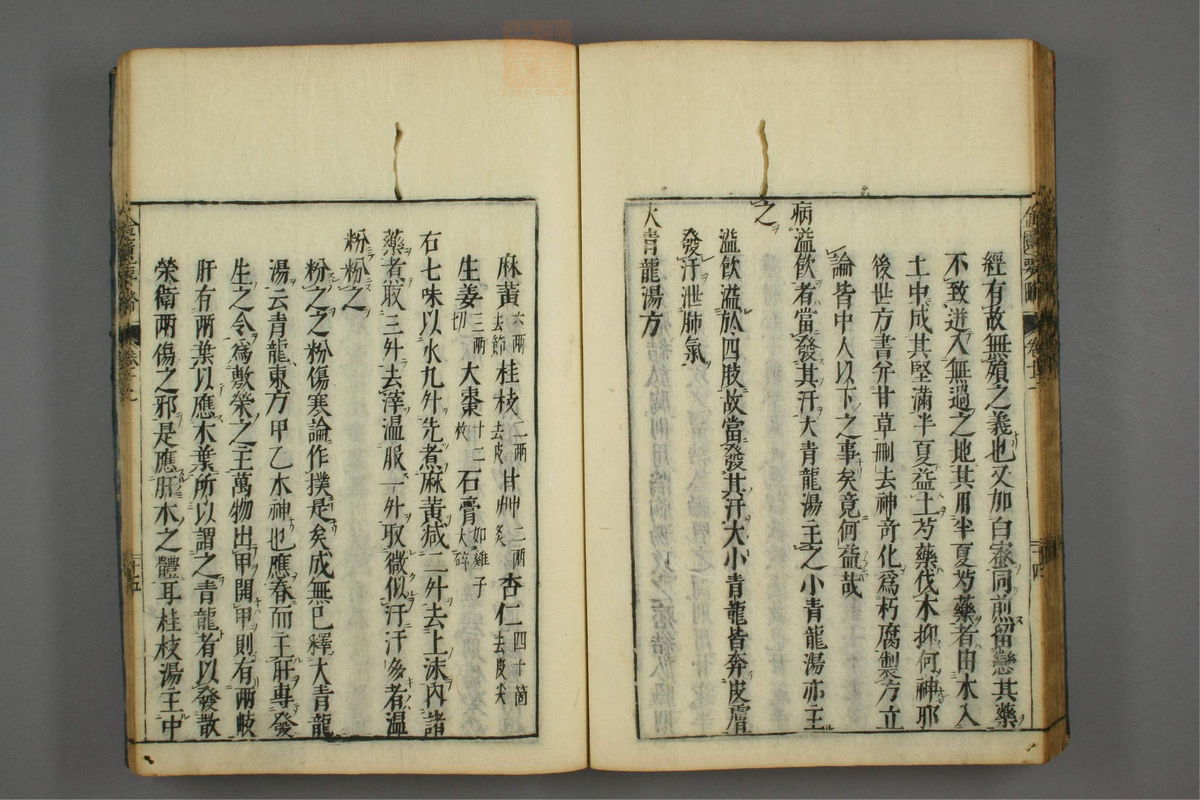 經有故無殞之義也又加白蜜同煎留戀其藥
不致迸入無過之地其用半夏芍藥者由木入
土中成其堅滿半夏益土芍藥伐木抑何神耶
後世方書并甘草刪去神奇化為朽腐製方立
論皆中人以下之事矣竟何益哉
病溢飲者當發其汗大青龍湯主之小青龍湯亦主
之
溢飲溢於四肢故當發其汗大小青龍皆奔皮膚
發汗泄肺氣
大青龍湯方
麻黃六兩去節 桂枝二兩去皮 甘艸二兩炙 杏仁四十箇去皮尖
生姜三兩切 大棗十二枚 石膏如雞子大碎
右七味以水九升先煮麻黃減二升去上沫內諸
藥煮取三升去滓溫服一升取微似汗汗多者溫
粉粉之
粉之之粉傷寒論作撲是矣成無己釋大青龍
湯云青龍東方甲乙木神也應春而主肝專發
生之令為敷榮之主萬物出甲開甲則有兩岐
肝有兩葉以應木葉所以謂之青龍者以發散
榮衛兩傷之邪是應肝木之體耳桂枝湯主中
金匱要略